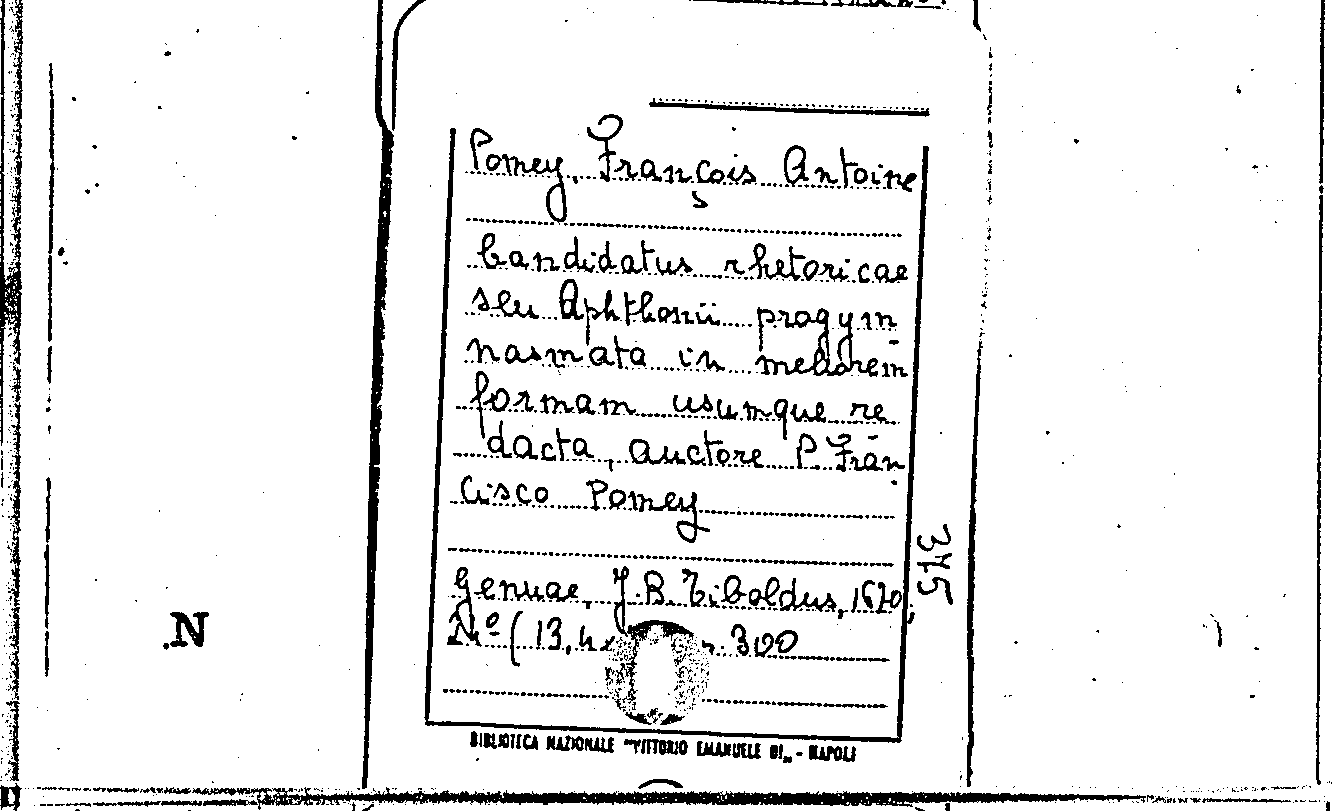 Pomey, François Antoine
Candidatus rhetoricae
seu Aphthonii progym
nasmata in meliorem
formam usumque re
dacta, auctore P. Fran
cisco Pomey
Genuae, J.B. Tiboldus, 1670,
N° (13,4x n. 300
375
N
BIBLIOTECA NAZIONALE "VITTORIO EMANUELE III„ - NAPOLI